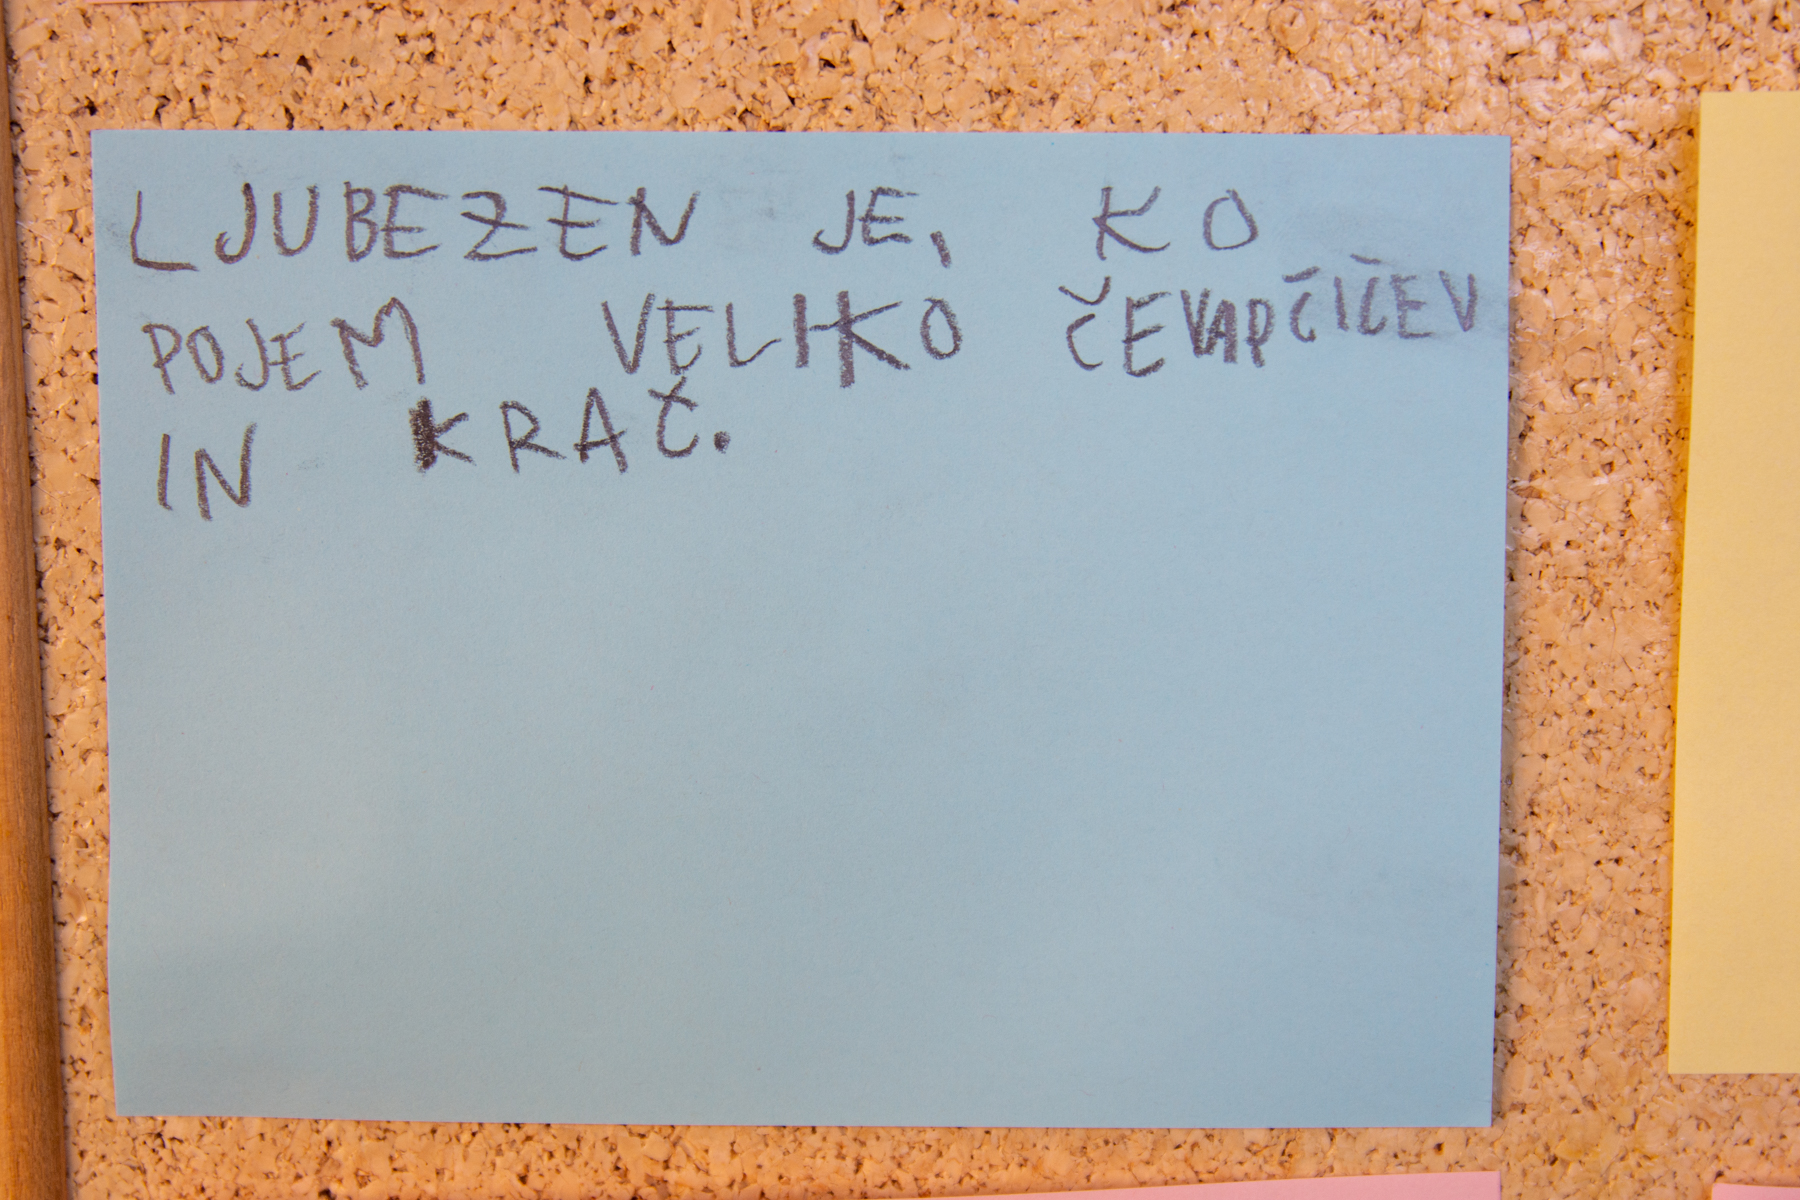 LJUBEZEN JE, KO
POJEM VELIKO ČEVAPČIČEV
IN KRAČ.